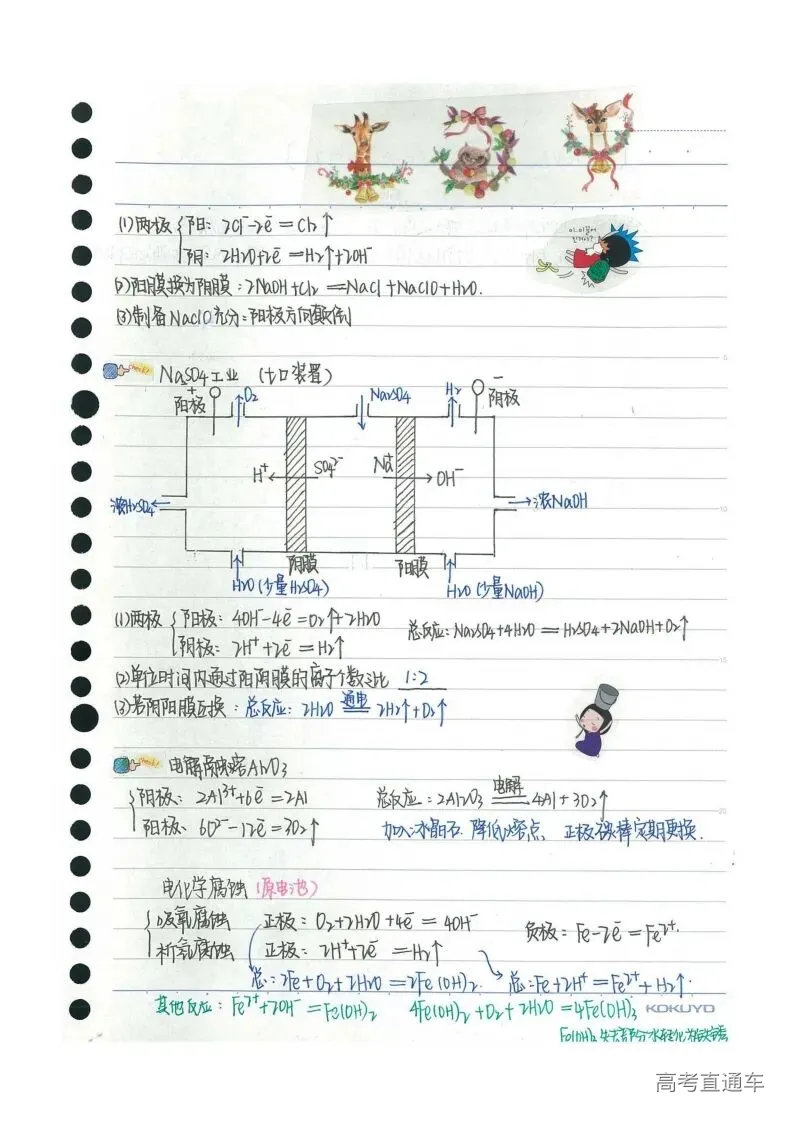 (1)两极 阳: 2Cl⁻-2e⁻=Cl₂↑
阴: 2H₂O+2e⁻=H₂↑+2OH⁻
(2)阳膜换为阴膜:2NaOH+Cl₂=NaCl+NaClO+H₂O.
(3)制备NaClO充分:阳极方向颠倒
Check!
Na₂SO₄工业 (七口装置)
+ O₂ Na₂SO₄ H₂ -
阳极 阴极
H⁺ SO₄²⁻ Na⁺ OH⁻
浓H₂SO₄ 浓NaOH
阴膜 阳膜
H₂O(少量H₂SO₄) H₂O(少量NaOH)
(1)两极 阳极: 4OH⁻-4e⁻=O₂↑+2H₂O
阴极: 2H⁺+2e⁻=H₂↑
总反应:Na₂SO₄+4H₂O=H₂SO₄+2NaOH+O₂↑
(2)单位时间内通过阳阴膜的离子个数之比 1:2
(3)若阴阳膜互换:总反应:2H₂O 通电 2H₂↑+O₂↑
Check!
电解熔融Al₂O₃
阴极: 2Al³⁺+6e⁻=2Al 总反应:2Al₂O₃ 电解 4Al+3O₂↑
阳极: 6O²⁻-12e⁻=3O₂↑ 加入冰晶石 降低熔点 正极碳棒定期更换.
电化学腐蚀(原电池)
吸氧腐蚀 正极: O₂+2H₂O+4e⁻=4OH⁻ 负极:Fe-2e⁻=Fe²⁺.
析氢腐蚀 正极: 2H⁺+2e⁻=H₂↑
总:2Fe+O₂+2H₂O=2Fe(OH)₂. 总:Fe+2H⁺=Fe²⁺+H₂↑.
其他反应:Fe²⁺+2OH⁻=Fe(OH)₂ 4Fe(OH)₂+O₂+2H₂O=4Fe(OH)₃
KOKUYO
Fe(OH)₃失去部分水转化为铁锈
高考直通车